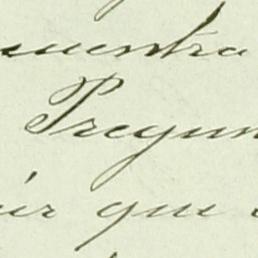 cuentra
Pregun
ir que